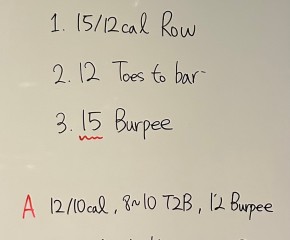 1. 15/12cal Row
2. 12 Toes to bar
3. 15 Burpee
A 12/10cal, 8~10 T2B, 12 Burpee